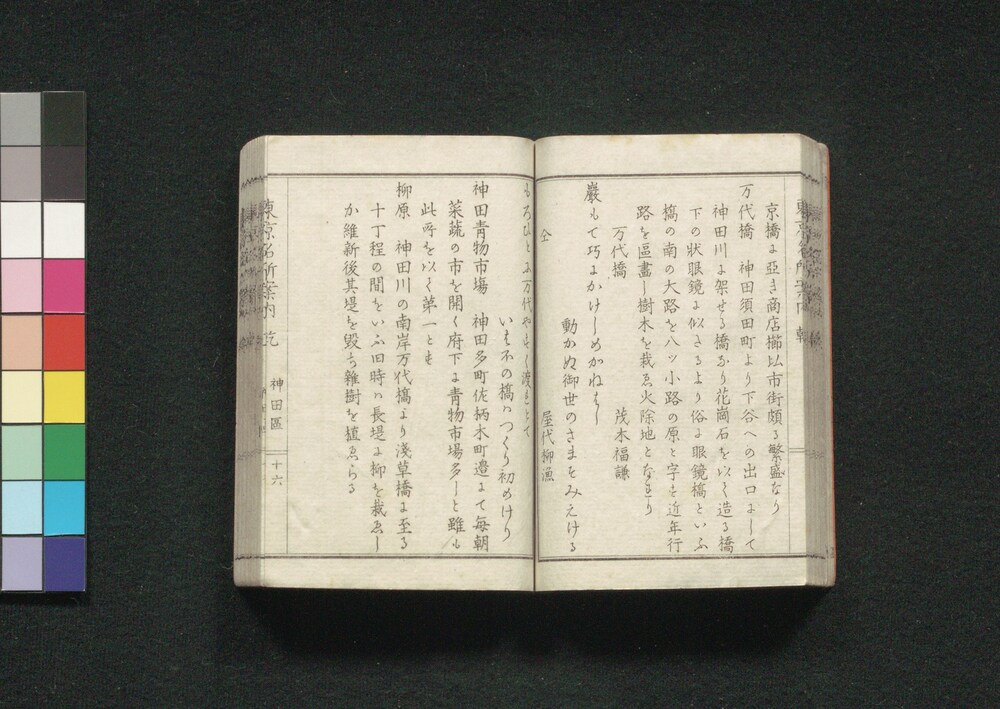 京橋に亞き商店櫛比市街頗る繁盛なり
万代橋　神田須田町より下谷への出口にして
神田川に架せる橋なり花崗石を以て造る橋
下の狀眼鏡に似たるより俗に眼鏡橋といふ
橋の南の大路を八ッ小路の原と字す近年行
路を區畫し樹木を栽ゑ火除地となせり
万代橋　茂木福謙
巖もて巧にかけしめかねはし
動かぬ御世のさまそみえける
仝　屋代柳漁
もろひとに万代やすく渡れとて
いしの橋はつくり初めけり
神田青物市塲　神田多町佐柄木町邉にて毎朝
菜蔬の市を開く府下に青物市塲多しと雖も
此所を以て第一とす
柳原　神田川の南岸万代橋より淺草橋に至る
十丁程の間をいふ旧時ハ長堤に柳を栽ゑし
か維新後其堤を毀ち雜樹を植ゑらる
東京名所案内　乾
神田區
十六